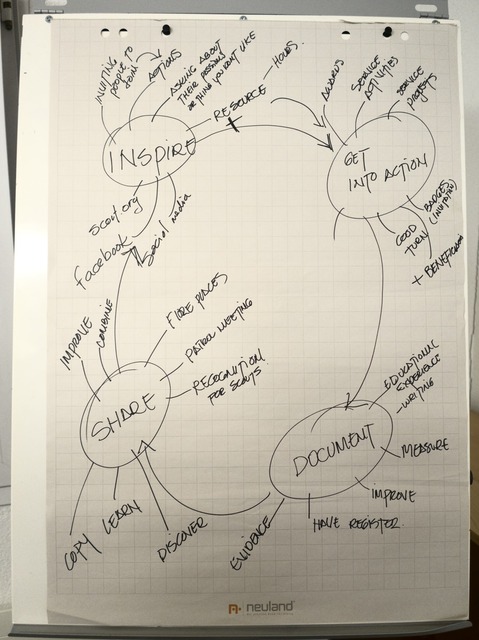 INVITING
PEOPLE TO
JOIN
ACTIONS
ASKING ABOUT
THEIR PASSIONS
OR THING YOU DON'T LIKE
RESOURCE
HOURS
INSPIRE
scout.org
facebook
social media
AWARDS
SERVICE
ACTIVITIES
SERVICE
PROJECTS
GET
INTO ACTION
BADGES
GOOD
TURN
IMPROVE
COMBINE
FIRE PLACES
PATROL MEETING
RECOGNITION
FOR SCOUTS
SHARE
COPY
LEARN
DISCOVER
EDUCATIONAL
EXPERIENCE
- WRITING
DOCUMENT
MEASURE
IMPROVE
HAVE REGISTER
EVIDENCE
neuland